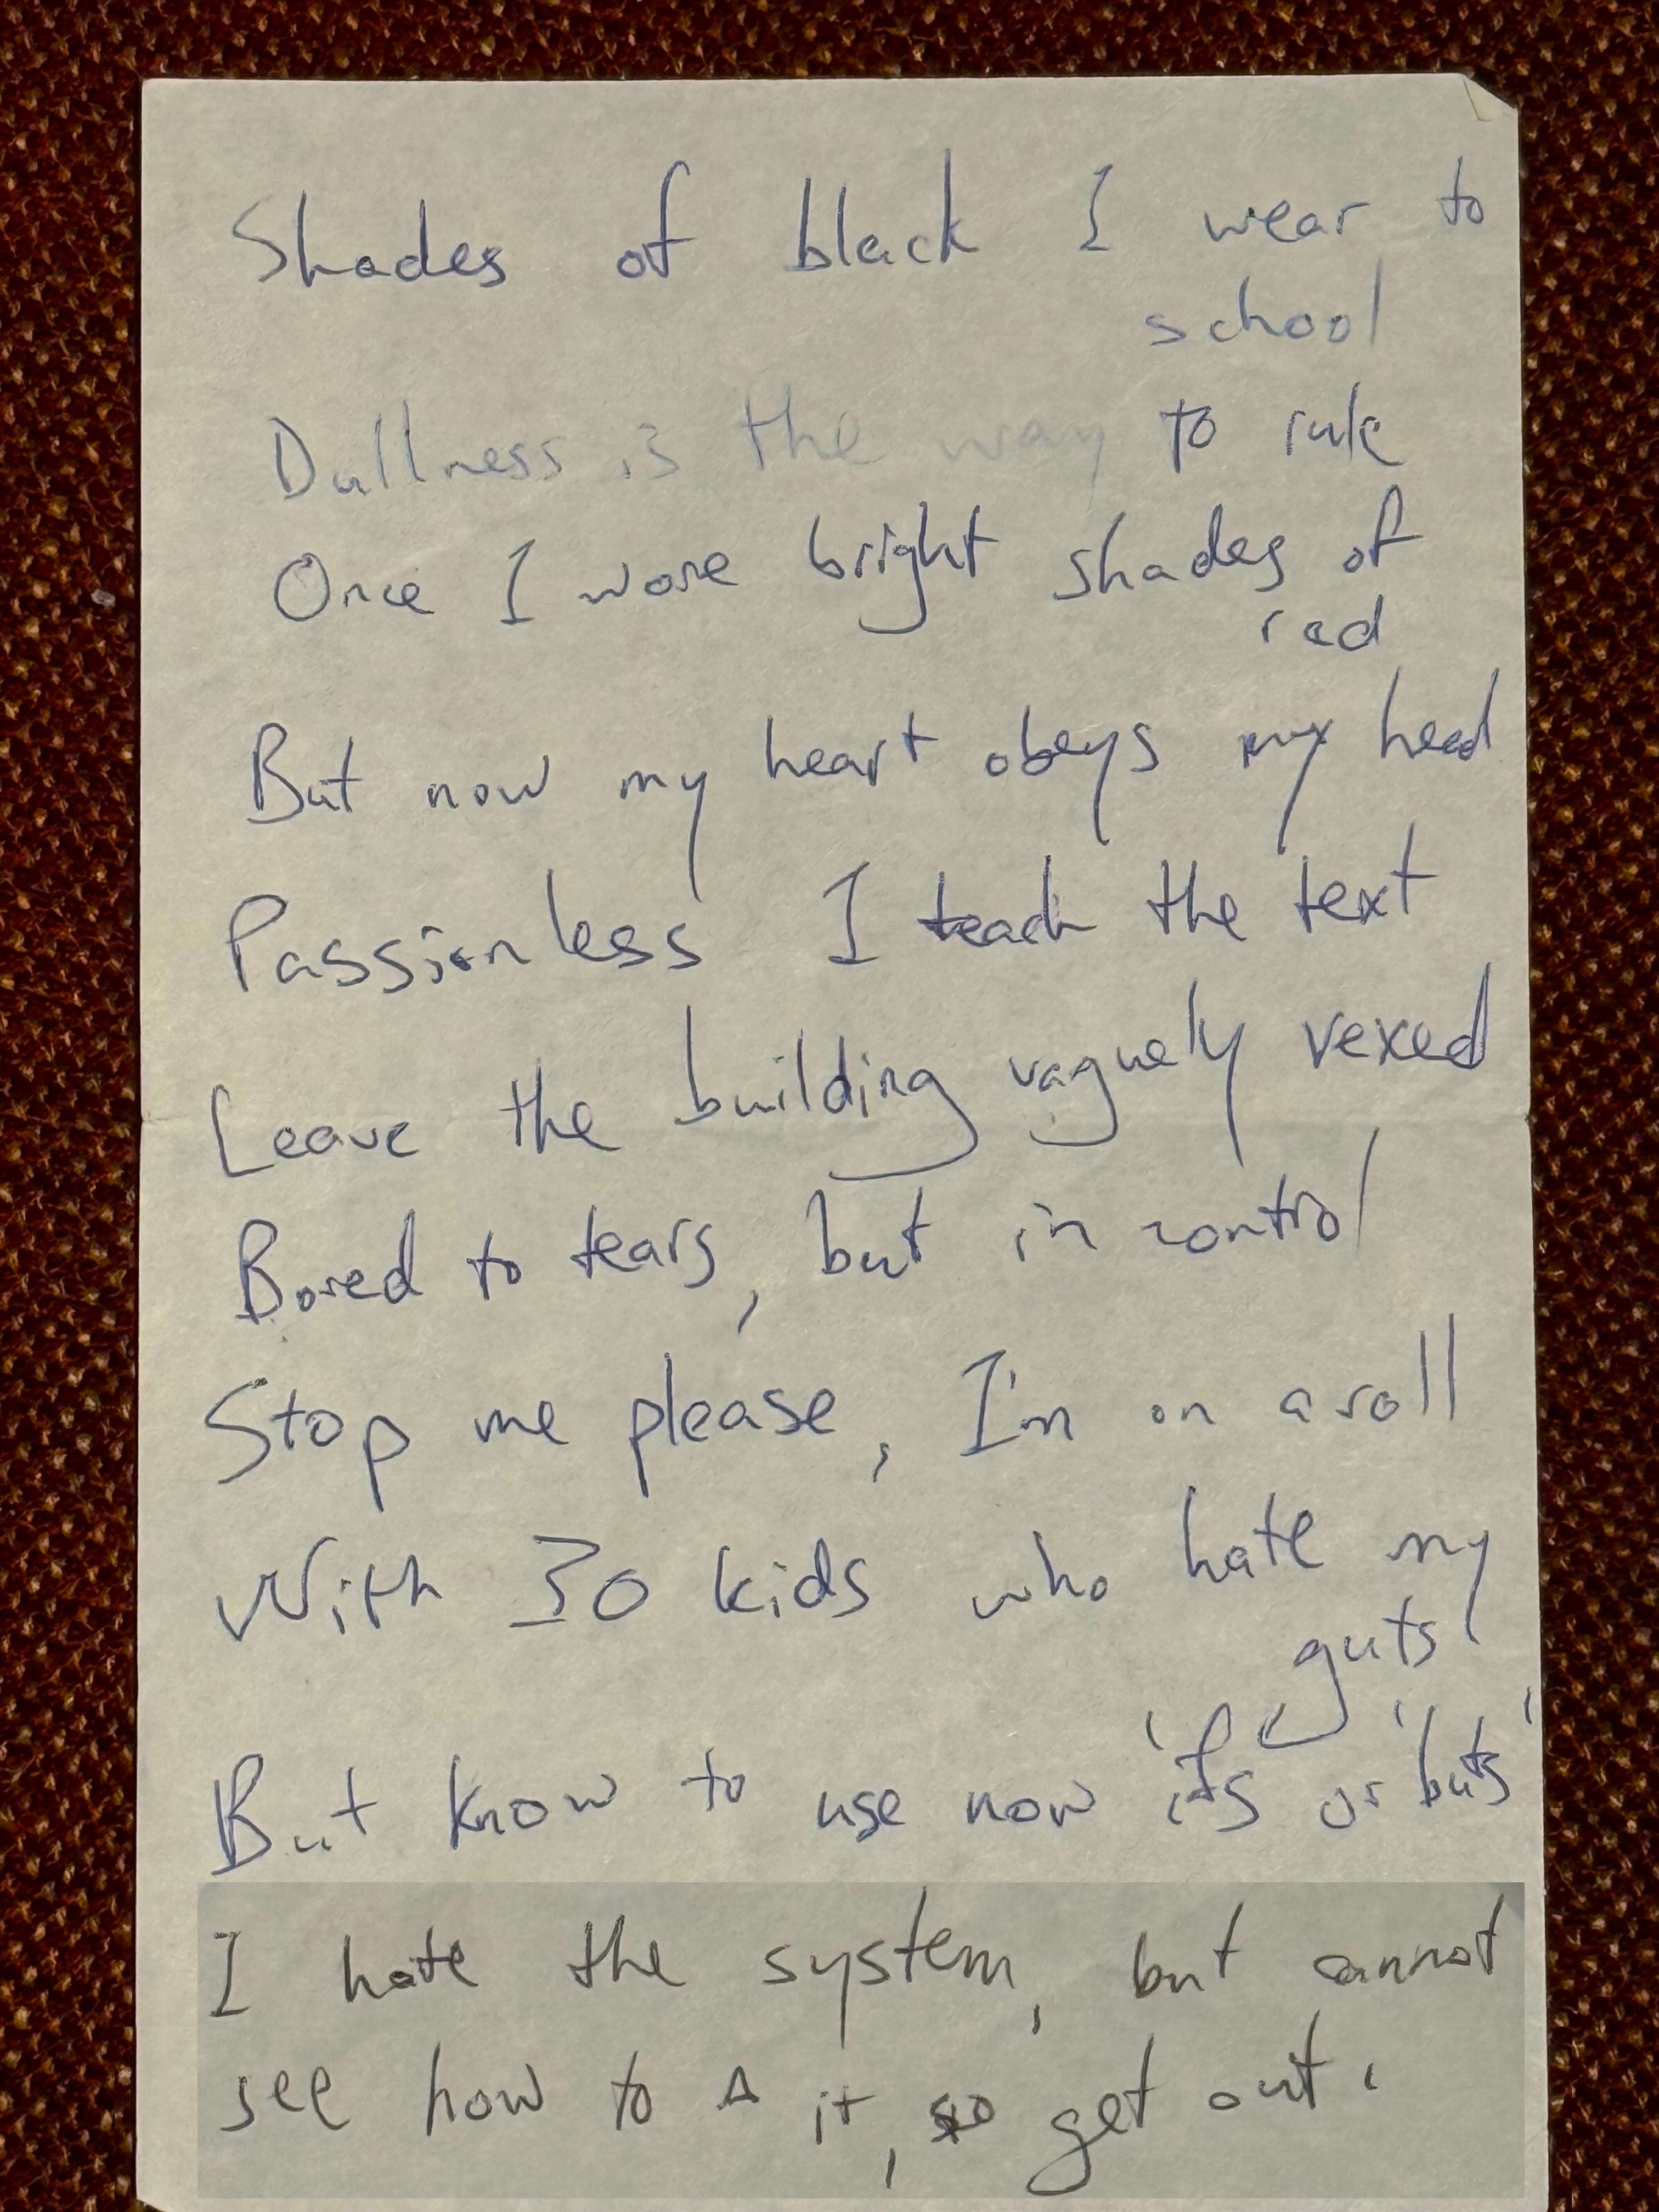 Shades of black I wear to
school
Dullness is the way to rule
Once I wore bright shades of
red
But now my heart obeys my head
Passionless I teach the text
Leave the building vaguely vexed
Bored to tears, but in control
Stop me please, I'm on a roll
With 30 kids who hate my
guts
But know to use now 'ifs' or 'buts'
I hate the system, but cannot
see how to Δ it, so get out.